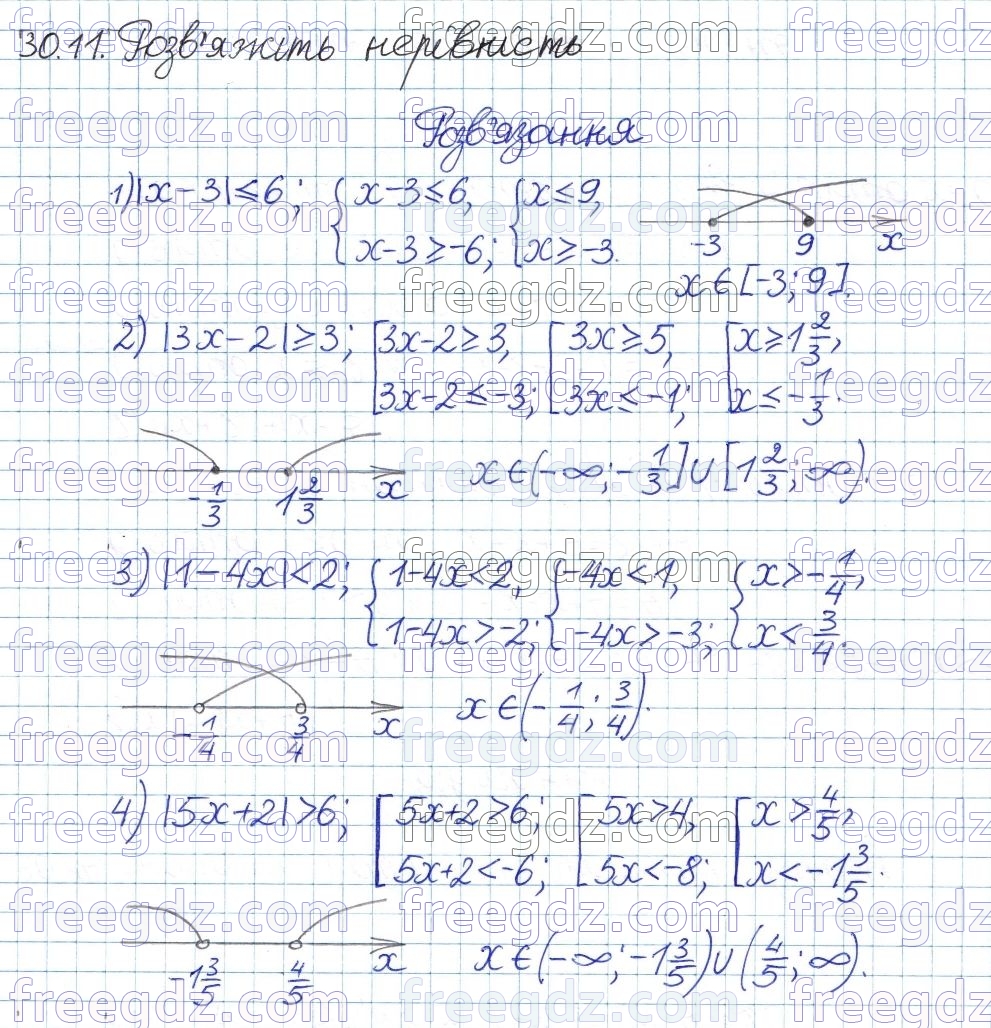 30.11. Розв'яжіть нерівність
Розв'язання
1) |x-3|≤6; { x-3≤6, x-3≥-6; { x≤9, x≥-3.
-3 9 x
x∈[-3; 9].
2) |3x-2|≥3; [ 3x-2≥3, 3x-2≤-3; [ 3x≥5, 3x≤-1; [ x≥1 2/3, x≤-1/3.
-1/3 1 2/3 x x∈(-∞; -1/3]∪[1 2/3; ∞).
3) |1-4x|<2; { 1-4x<2, 1-4x>-2; { -4x<1, -4x>-3; { x>-1/4, x<3/4.
-1/4 3/4 x x∈(-1/4; 3/4).
4) |5x+2|>6; [ 5x+2>6; 5x+2<-6; [ 5x>4, 5x<-8; [ x>4/5, x<-1 3/5.
-1 3/5 4/5 x x∈(-∞; -1 3/5)∪(4/5; ∞).
freegdz.com